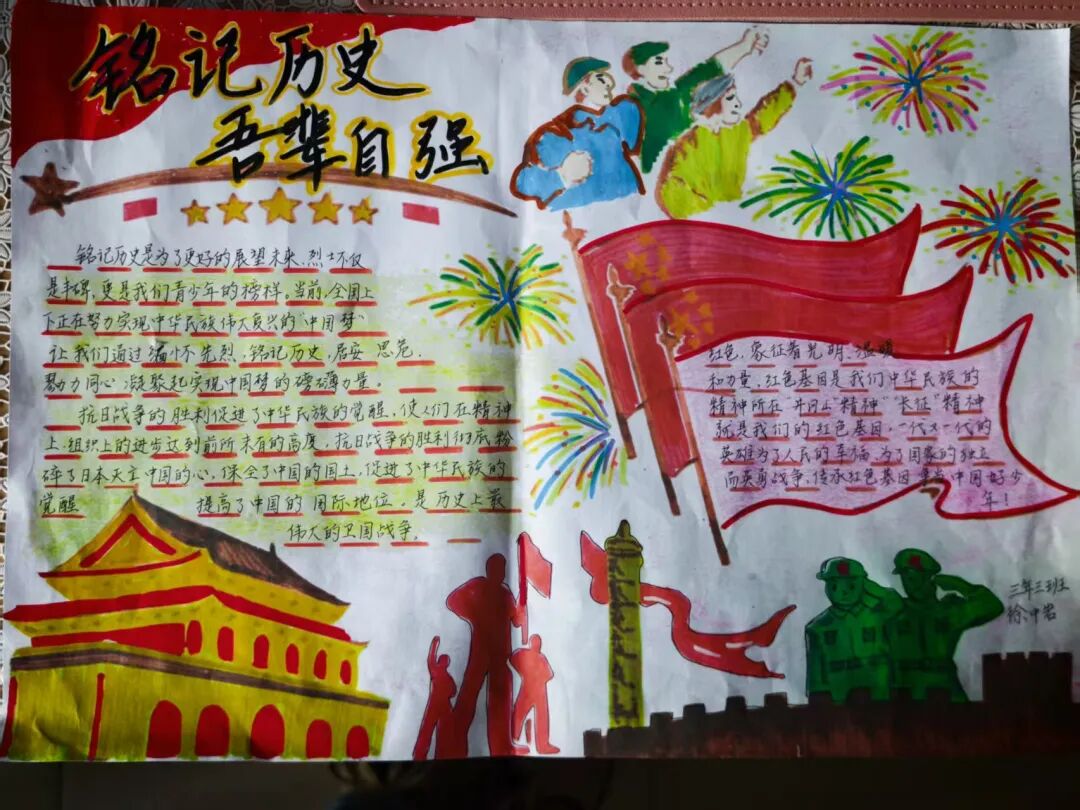 铭记历史
吾辈自强
铭记历史是为了更好的展望未来、烈士不仅
是丰碑,更是我们青少年的榜样。当前,全国上
下正在努力实现中华民族伟大复兴的"中国梦"
让我们通过缅怀先烈,铭记历史,居安思危,
勠力同心 凝聚起实现中国梦的磅礴力量。
抗日战争的胜利促进了中华民族的觉醒,使人们在精神
上,组织上的进步达到前所未有的高度,抗日战争的胜利彻底粉
碎了日本灭亡中国的心,保全了中国的国土,促进了中华民族的
觉醒 提高了中国的国际地位,是历史上最
伟大的卫国战争。
红色,象征着光明、温暖
和力量,红色基因是我们中华民族的
精神所在"井冈山"精神"长征"精神
就是我们的红色基因,一代又一代的
英雄为了人民的幸福,为了国家的独立
而英勇战争,传承红色基因 争当中国好少
年!
三年三班
徐冲岩